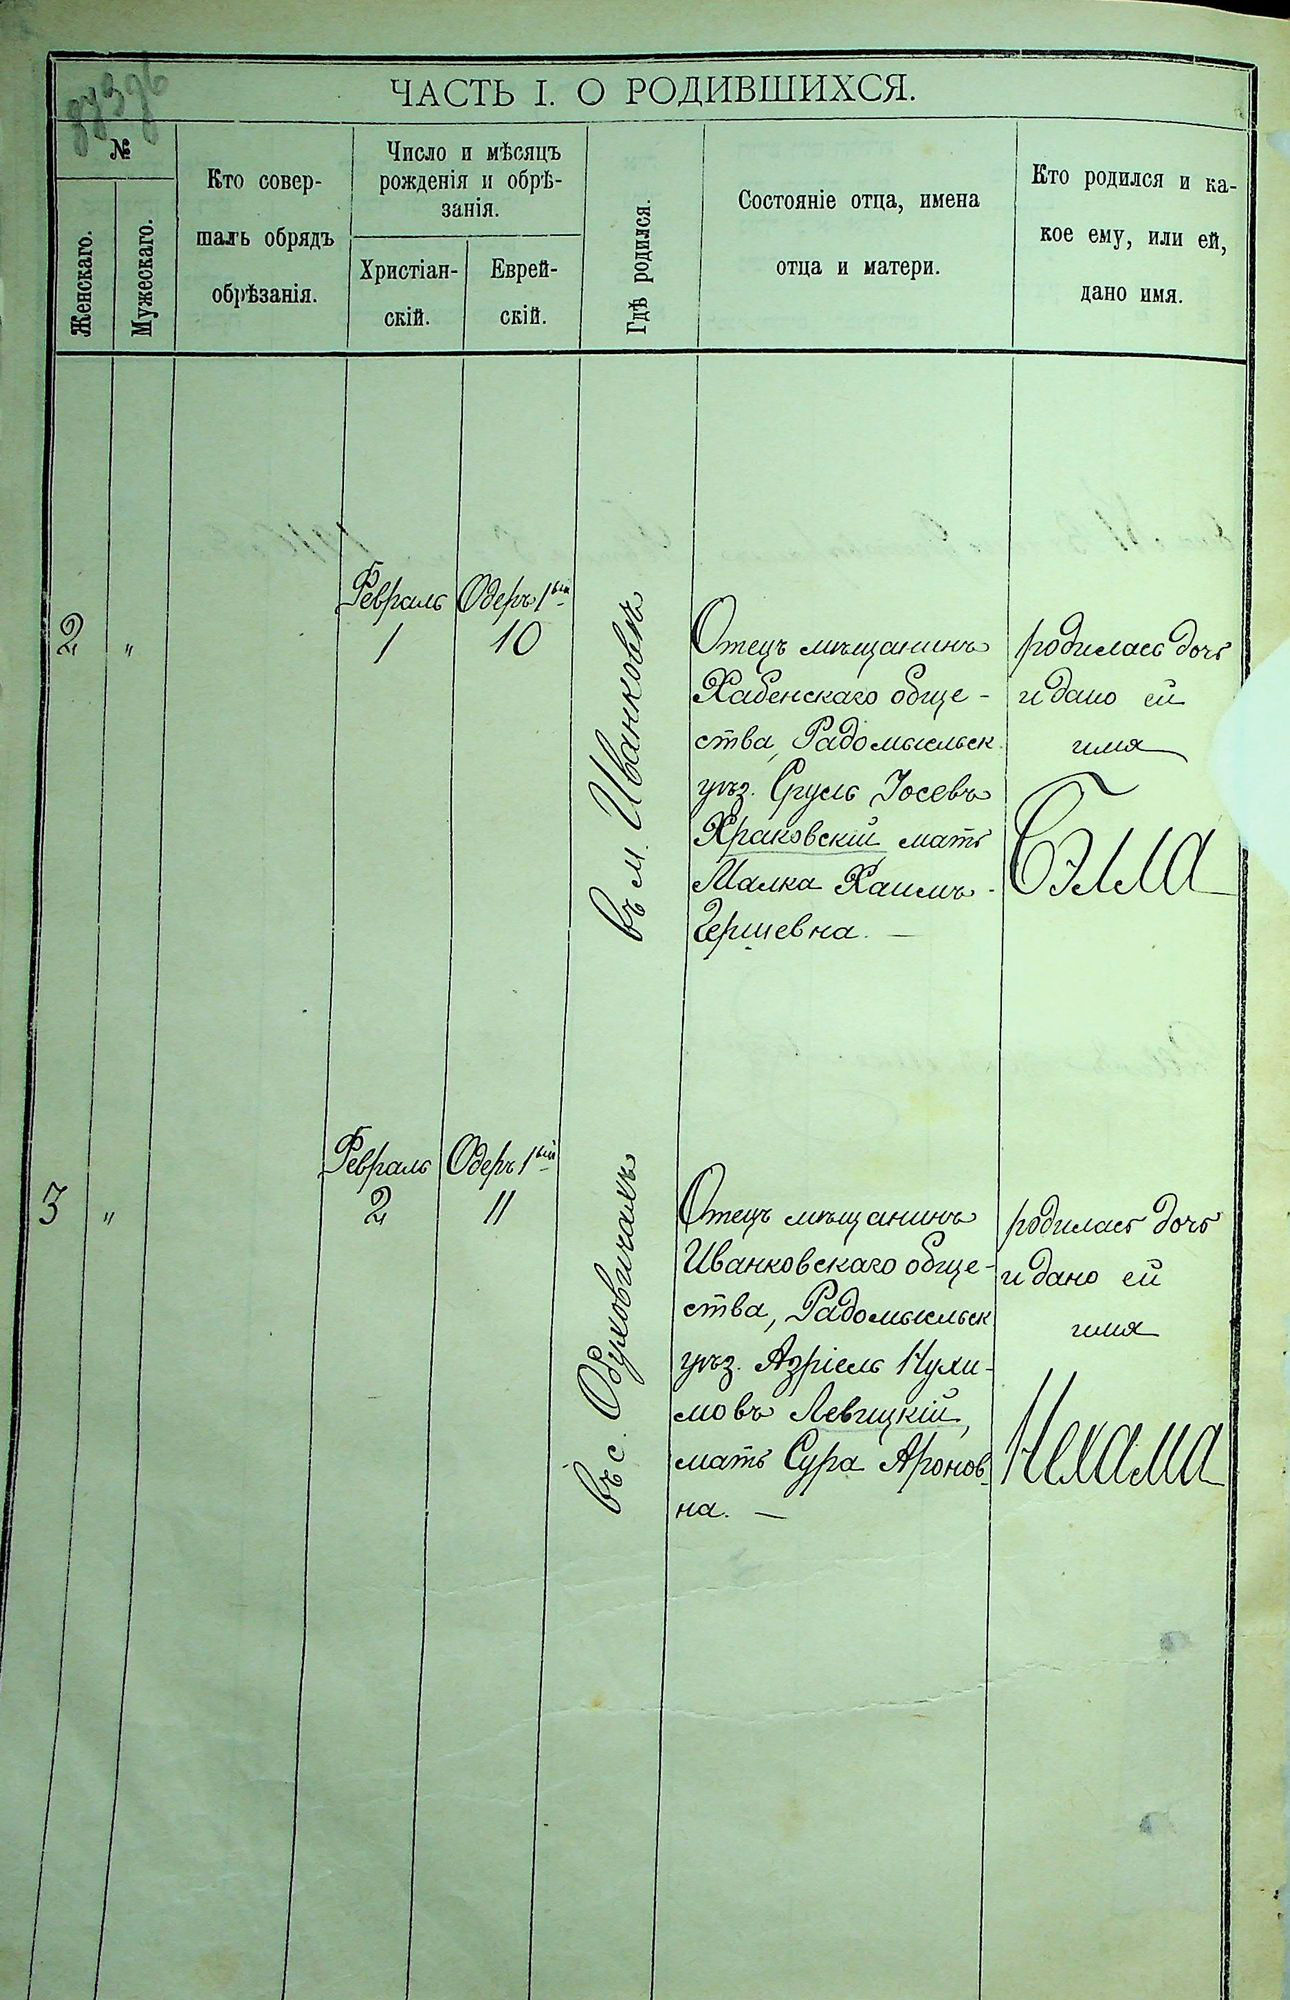 ЧАСТЬ I. О РОДИВШИХСЯ.
№
Женскаго.
Мужескаго.
Кто совер-
шалъ обрядъ
обрѣзанія.
Число и мѣсяцъ
рожденія и обрѣ-
занія.
Христіан-
скій.
Еврей-
скій.
Гдѣ родился.
Состояніе отца, имена
отца и матери.
Кто родился и ка-
кое ему, или ей,
дано имя.
2
"
Февраль
1
Одеръ 1ый
10
въ м. Иванковѣ
Отецъ мѣщанинъ
Хабенскаго обще-
ства, Радомысльск.
уѣз. Сруль Іосевъ
Храковскій мать
Малка Хаимъ-
Гершевна. —
родилась дочь
и дано ей
имя
Бэлла
3
"
Февраль
2
Одеръ 1ый
11
въ с. Обуховичахъ
Отецъ мѣщанинъ
Иванковскаго обще-
ства, Радомысльск
уѣз. Азріель Нухи-
мовъ Левицкій,
мать Сура Аронов-
на. —
родилась дочь
и дано ей
имя
Нехама